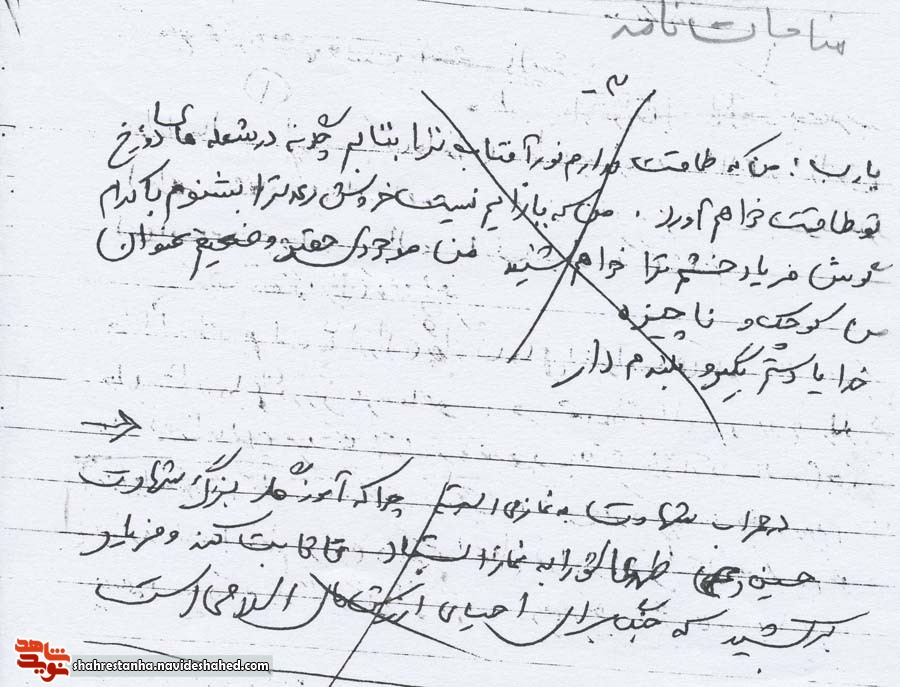 مناجات نامه
۳-
یا رب! من که طاقت ندارم نور آفتاب ترا بتابم چگونه در شعله های دوزخ
تو طاقت خواهم آورد. من که یارایم نیست خروش رعد ترا بشنوم با کدام
گوش فریاد خشم ترا خواهم شنید من موجودی حقیر و ضعیفم بعنوان
من کوچک و ناچیزم
خدایا دستم بگیر و بلندم دار
در محراب شهادت به نمازی چرا که آموزگار بزرگ شهادت
حسین ظهر را به نماز ایستاد تا ثابت کند و فریاد
بر کشید که جنگ برای احیای اسلامی است
شاهد
نوید
shahrestanha.navideshahed.com